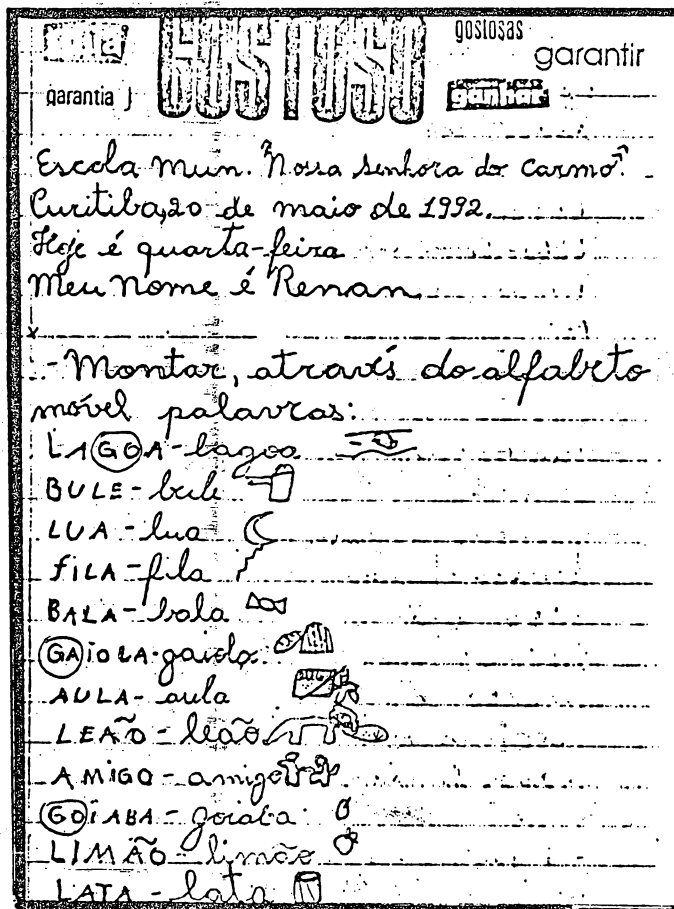 gostosas
GOSTOSO garantir
garantia ganhar
Escola Mun. "Nossa Senhora do Carmo".
Curitiba, 20 de maio de 1992.
Hoje é quarta-feira
Meu nome é Renan
x
- Montar, através do alfabeto
móvel palavras:
LAGOA - lagoa
BULE - bule
LUA - lua
FILA - fila
BALA - bala
GAiOLA - gaiola
AULA - aula
LEÃO - leão
AMiGO - amigo
GOiABA - goiaba
LIMÃO - limão
LATA - lata